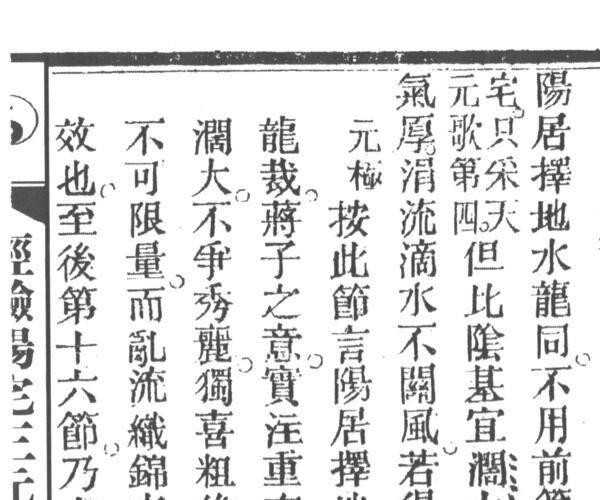 陽居擇地水龍同不用前
宅只采天
元歌第四但比陰基宜濶
氣厚涓流滴水不關風若
元極按此節言陽居擇
龍裁蔣子之意實注重
濶大不爭秀麗獨喜粗
不可限量而亂流織錦
效也至後第十六節乃
經驗陽宅三